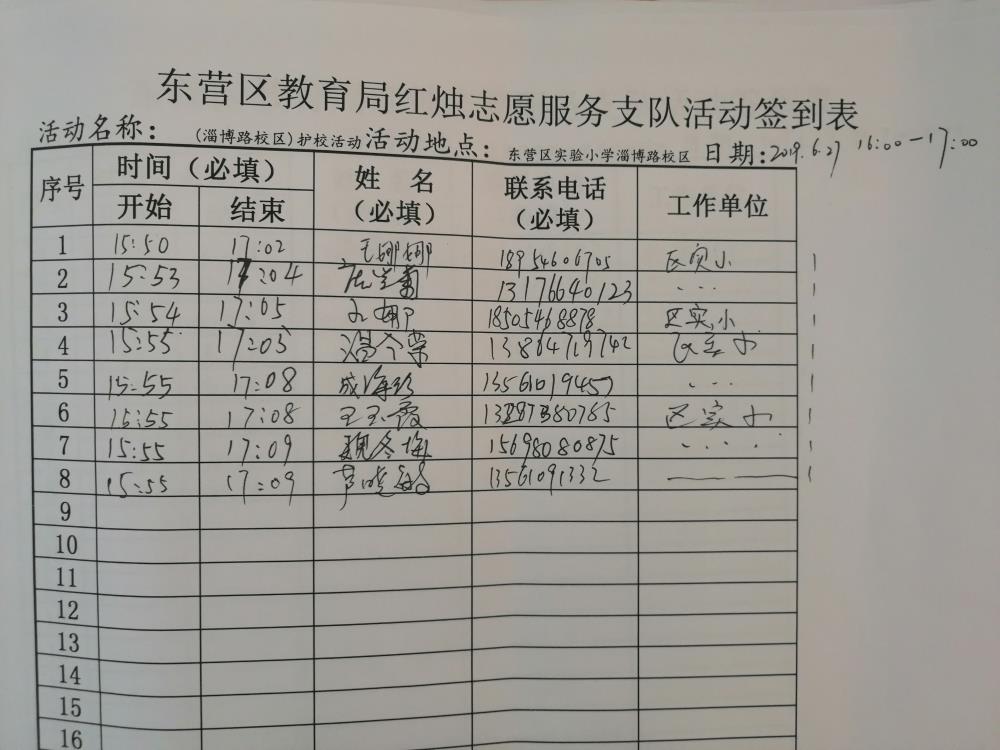 东营区教育局红烛志愿服务支队活动签到表
活动名称：（淄博路校区）护校活动 活动地点：东营区实验小学淄博路校区 日期：2019.6.27 16:00-17:00
序号 时间（必填） 姓 名（必填） 联系电话（必填） 工作单位
开始 结束
1 15:50 17:02 王娜娜 18954606705 区实小 1
2 15:53 17:04 13176640123 ... 1
3 15:54 17:05 18505468878 区实小 1
4 15:55 17:05 13864719742 区实小 1
5 15:55 17:08 成海珍 13561019457 ... 1
6 15:55 17:08 王玉霞 区实小 1
7 15:55 17:09 魏冬梅 15698080875 .... 1
8 15:55 17:09 13561091332 —— 1
9
10
11
12
13
14
15
16